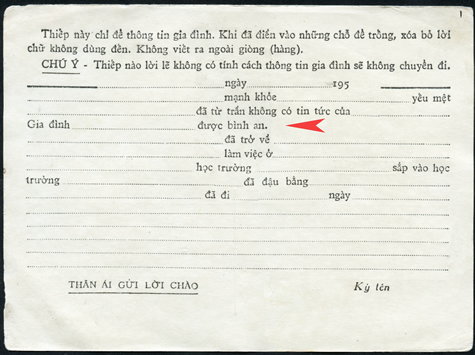 1
Thiếp này chỉ để thông tin gia đình. Khi đã điền vào những chỗ để trồng, xóa bỏ lời
chữ không dùng đến. Không viết ra ngoài giòng (hàng).
CHÚ Ý - Thiếp nào lời lẽ không có tính cách thông tin gia đình sẽ không chuyển đi.
ngày 195
mạnh khỏe yếu mệt
đã từ trần không có tin tức của
Gia đình được bình an.
đã trở về
làm việc ở
học trường sắp vào học
trường đã đậu bằng
đã đi ngày
THÂN ÁI GỬI LỜI CHÀO Ký tên